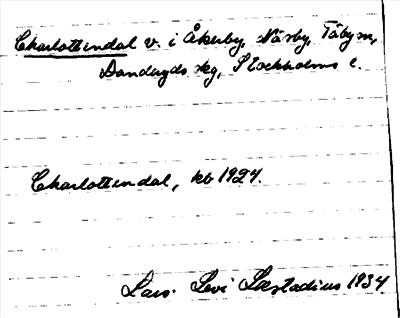 Charlottendal v. i Åkerby, Näsby, Täby sn,
Danderyds skg, Stockholms l.
Charlottendal, kb 1924
Lars Levi Læstadius 1934